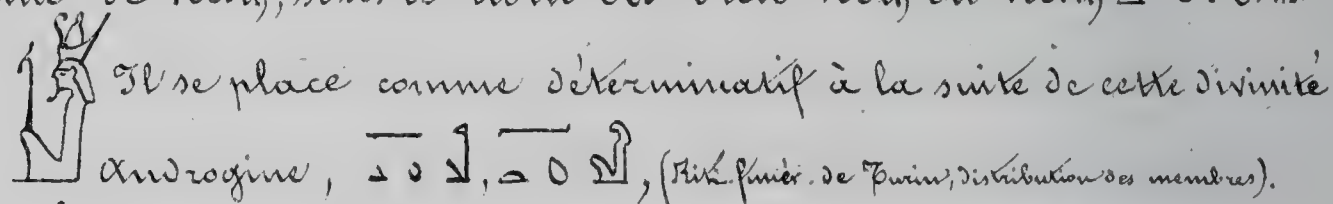 Il se place comme déterminatif à la suite de cette divinité
Androgine, (Rit. funér. de Turin, distribution des membres).